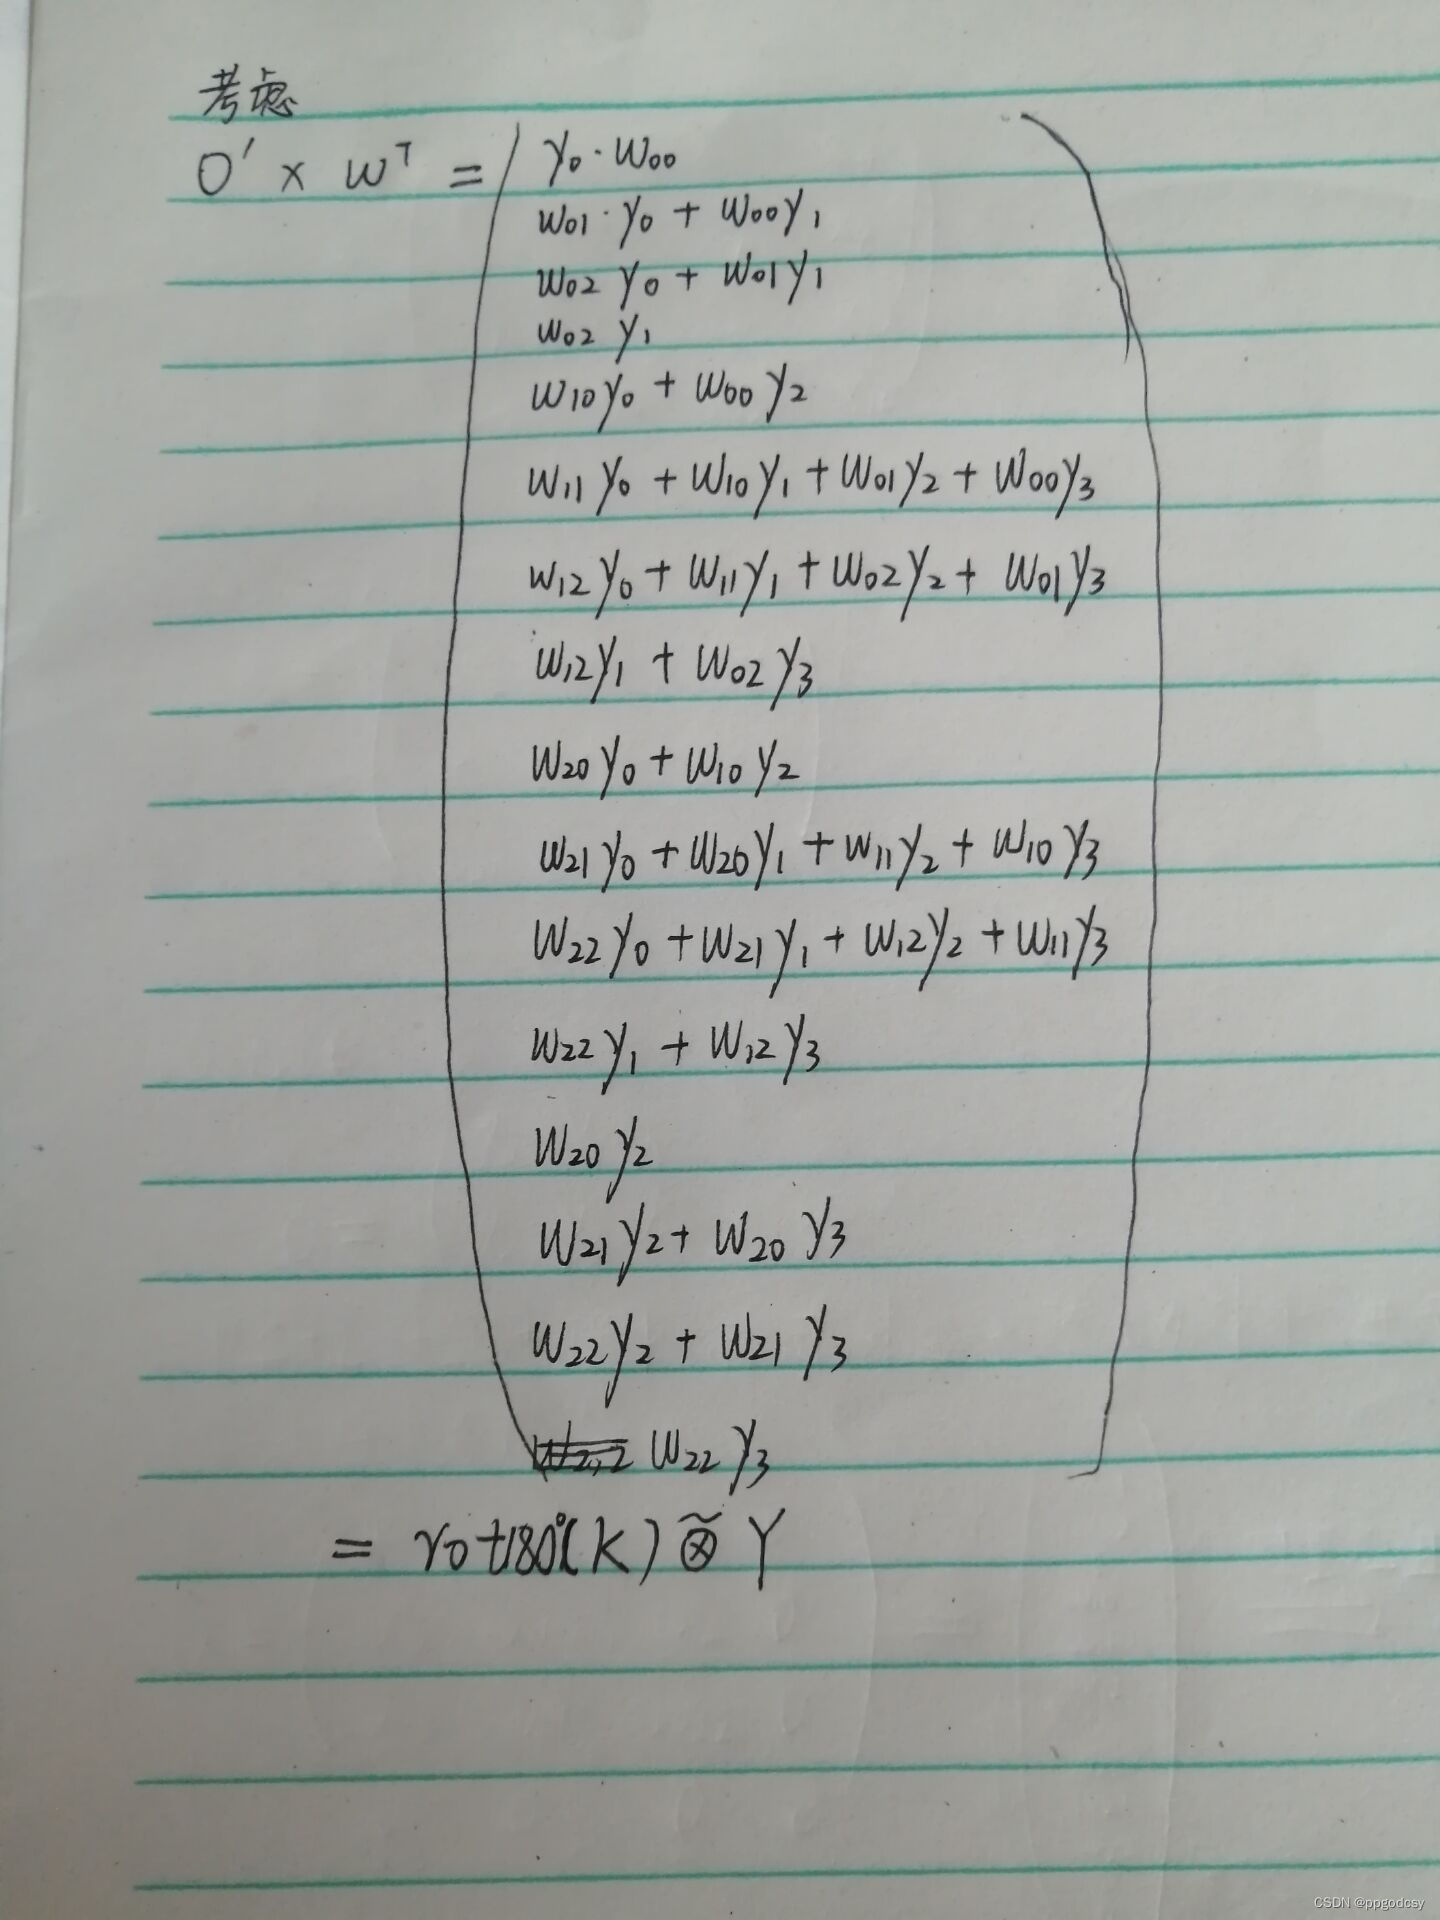 考虑
O' × W^T =
y0 · w00
w01 · y0 + w00y1
w02 y0 + w01y1
w02 y1
w10y0 + w00 y2
w11 y0 + w10y1 + w01y2 + w00y3
w12 y0 + w11y1 + w02y2 + w01y3
w12y1 + w02 y3
w20 y0 + w10 y2
w21 y0 + w20y1 + w11y2 + w10 y3
w22 y0 + w21 y1 + w12y2 + w11y3
w22 y1 + w12y3
w20 y2
w21 y2 + w20 y3
w22 y2 + w21 y3
w22 y3
= rot180°(K) ⊗̃ Y
CSDN @ppgodcsy